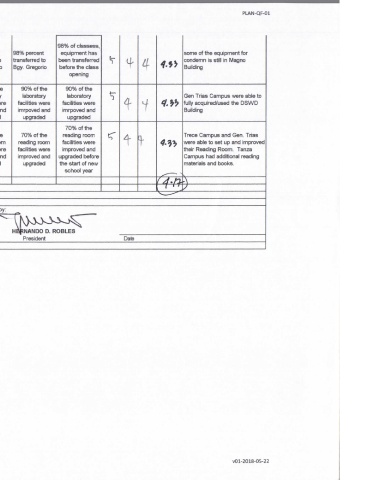 PLAN-QF-01
98% percent transferred to Bgy. Gregorio
98% of classess, equipment has been transferred before the class opening
5 4 4 4.33
some of the equipment for condemn is still in Magno Building
90% of the laboratory facilities were imrpoved and upgraded
90% of the laboratory facilities were imrpoved and upgraded
5 4 4 4.33
Gen Trias Campus were able to fully acquired/used the DSWD Building
70% of the reading room facilities were improved and upgraded
70% of the reading room facilities were improved and upgraded before the start of new school year
5 4 4 4.33
Trece Campus and Gen. Trias were able to set up and improved their Reading Room. Tanza Campus had additional reading materials and books.
4.17
by:
HERNANDO D. ROBLES
President
Date
v01-2018-05-22